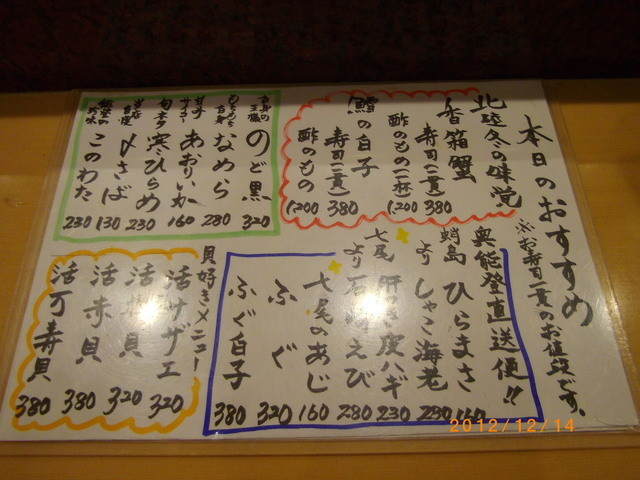 本日のおすすめ
※お寿司一貫のお値段です。
北陸冬の味覚
香箱蟹
寿司(一貫) 380
酢のもの一杯 1,200
鱈の白子
寿司(一貫) 380
酢のもの 1,200
のど黒 320
もちもち白身
なめら 280
甘みサイコー
あおりいか 160
旬ネタ
寒ひらめ 230
〆さば 130
このわた 230
奥能登直送便!!
蛸島より
ひらまさ 160
しゃこ海老 230
七尾より
肝つき皮ハギ 230
石崎えび 280
七尾のあじ 160
ふぐ 320
ふぐ白子 380
貝好きメニュー
活サザエ 320
活赤貝 380
活万寿貝 380
2012/12/14